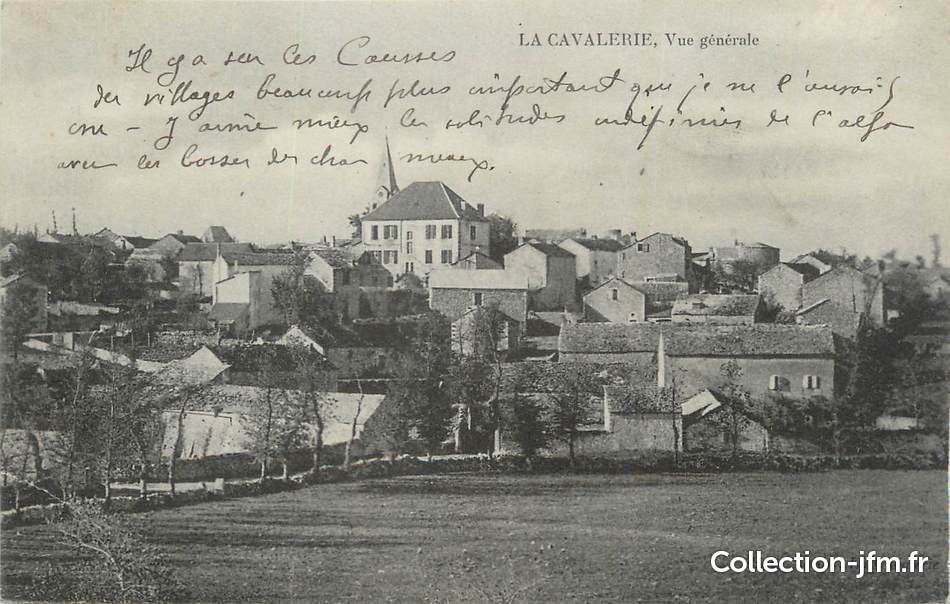 LA CAVALERIE, Vue générale
Il y a sur ces Causses
des villages beaucoup plus important que je ne l'aurais
cru - J'aime mieux les solitudes indéfinies de l'alfa
avec les bosses de chameaux.
Collection-jfm.fr